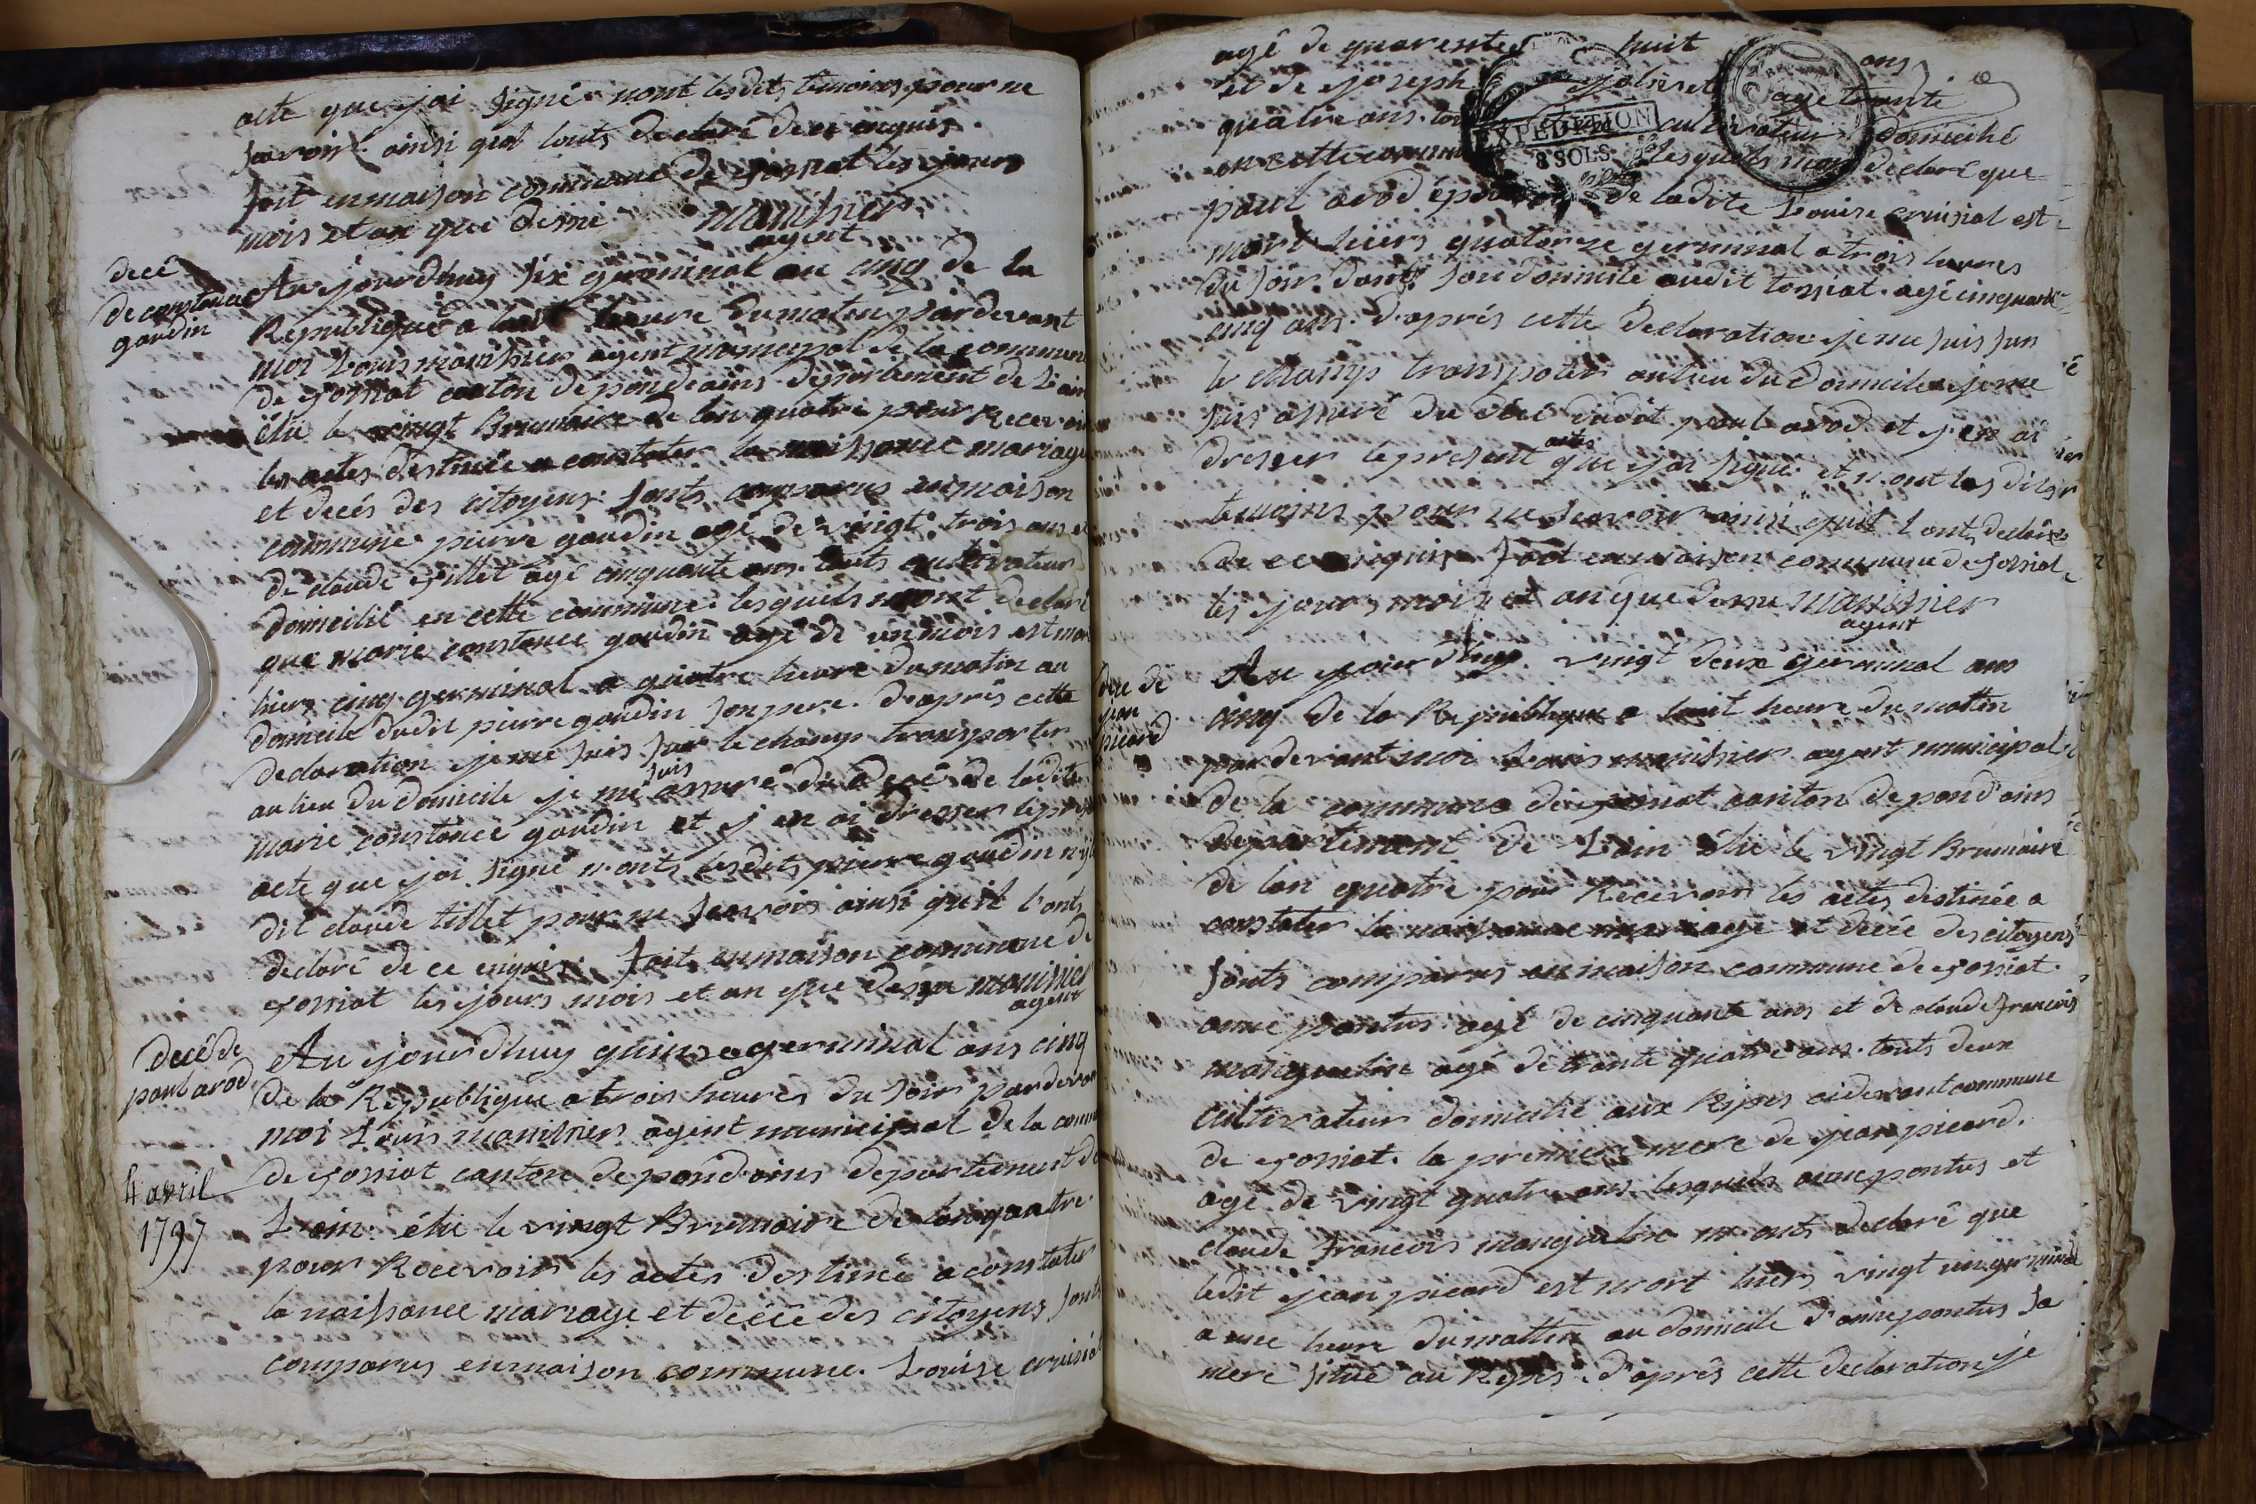 acte que jai signé nont lesdits temoins pour ne
savoir ainsi quil louts declaré de ce enquis.
fait en maison commune de jossiat les jours
mois et an que dessu mounier
agent
decé
de constance
gaudin
Au jourdhuy six germinal an cinq de la
Republique a huit heure du matin pardevant
moi Louis mounier agent municipal de la commune
de jossiat canton de pondeains departement de Lain
élu le vingt Brumaire de lan quatre pour Recevoir
les actes destinée a constater la naissance mariage
et decés des citoyens. sonts comparus en maison
commune pierre gaudin agé de vingt trois ans et
de claude tillet agé cinquante ans touts cultivateur
domicilié en cette commune. lesquels mont declaré
que marie constance gaudin agé de un mois est mor
hiers cinq germinal a quatre heure du matin au
domicile dudit pierre gaudin son pere. d'aprés cette
declaration je me suis sur le champ transporter
au lieu du domicile je me suis assuré du decé de ladite
marie constance gaudin et j en ai dresser le present
acte que jai signé n'onts lesdits pierre gaudin ny le
dit claude tillet pour ne savoir ainsi quil l'onts
declaré de ce enquis. fait en maison commune de
jossiat les jours mois et an que dessu mounier
agent
decé de
paul arod
4 avril
1797
Au jourdhuy quinse germinal ans cinq
de la Republique a trois heures du soir pardevan
moi Louis mounier agent municipal de la comm
de jossiat canton de pond'ains departement de
L'ain. élu le vingt Brumaire de lan quatre
pour Recevoir les actes destinée a constater
la naissance mariage et decée des citoyens sont
comparus en maison commune. Louise cruisiat
agé de quarente huit ans
et de joseph jolivet agé trente
quatre ans. cultivateur domicilié
en cette commune lesquels mont declaré que
EXPEDITION
8 SOLS
paul arod époux de ladite Louise cruisiat est
mort hiers quatorze germinal a trois heures
du soir dans son domicile audit jossiat. agé cinquante
cinq ans. d'aprés cette declaration je me suis sur
le champ transporter au lieu du domicile je me
suis assuré du decé dudit paul arod et j'en ai
dresser le present acte que jai signé et n'ont les dits
temoins pour ne savoir ainsi quil l'ont declaré
de ce enquis fait en maison commune de jossiat
les jours mois et an que dessu mounier
agent
decé de
jean
picard
Au jourdhuy. vingt deux germinal ans
cinq de la Republique a huit heure du mattin
pardevant moi Louis mounier agent municipal
de la commune de jossiat canton de pond'ains
departement de L'ain élu le vingt Brumaire
de lan quatre pour Recevoir les actes destinée a
constater la naissance mariage et decée des citoyens
sonts comparus en maison commune de jossiat.
anne pontus agé de cinquante ans et de claude francois
manguelin agé de trente quatre ans. touts deux
cultivateur domicilié aux Rippes cidevant commune
de jossiat. la premiere mere de jean picard.
agé de vingt quatre ans. lesquels anne pontus et
claude francois manguelin m'onts declaré que
ledit jean picard est mort hiers vingt un germinal
a une heure du mattin au domicile d'anne pontus sa
mere situé au Rippes. d'aprés cette declaration je